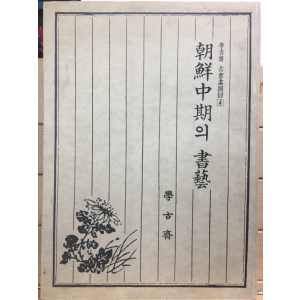 學古齋 古書畵圖錄 4
朝鮮中期의 書藝
學古齋